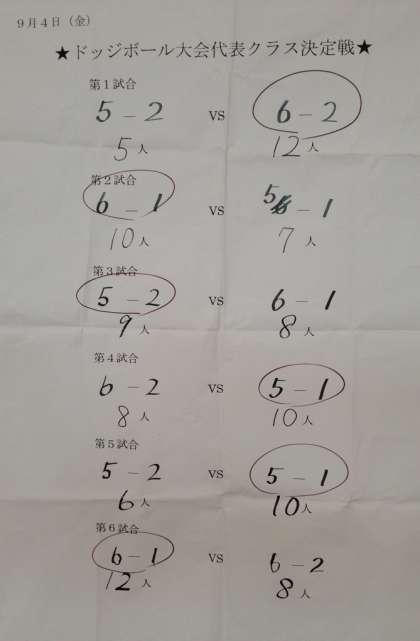 9月4日（金）
★ドッジボール大会代表クラス決定戦★
第1試合
5－2 VS 6－2
5人 12人
第2試合
6－1 VS 5－1
10人 7人
第3試合
5－2 VS 6－1
9人 8人
第4試合
6－2 VS 5－1
8人 10人
第5試合
5－2 VS 5－1
6人 10人
第6試合
6－1 VS 6－2
12人 8人